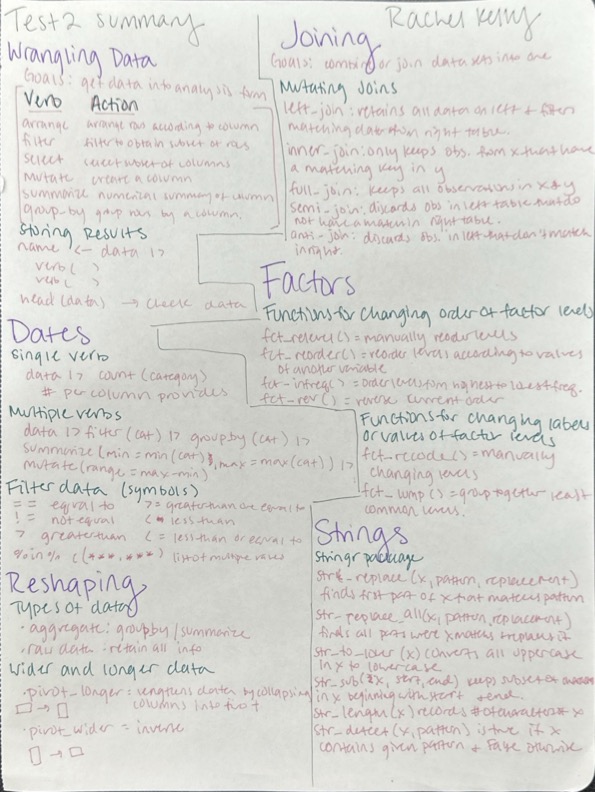 Test 2 summary
Rachel Kelly
Wrangling Data
Goals: get data into analysis form
Verb Action
arrange arrange rows according to column
filter filter to obtain subset of rows
select select subset of columns
mutate create a column
summarize numerical summary of column
group_by group rows by a column.
Storing Results
name <- data |>
verb( )
verb( )
head(data) → check data
Dates
Single verb
data |> count(category)
# per column provides
Multiple verbs
data |> filter(cat) |> groupby(cat) |>
summarize(min = min(cat), max = max(cat)) |>
mutate(range = max-min)
Filter data (symbols)
== equal to >= greater than or equal to
!= not equal < less than
> greater than <= less than or equal to
%in% c(***, ***) list of multiple values
Reshaping
Types of data
· aggregate: groupby/summarize
· raw data: retain all info
Wider and longer data
· pivot_longer: lengthens data by collapsing
columns into two +
□ → ▯
· pivot_wider = inverse
▯ → □
Joining
Goals: combine or join data sets into one
Mutating Joins
left_join: retains all data on left + filters
matching data from right table.
inner_join: only keeps obs. from x that have
a matching key in y
full_join: keeps all observations in x + y
semi_join: discards obs in left table that do
not have a match in right table.
anti_join: discards obs. in left that don't match
in right.
Factors
Functions for changing order of factor levels
fct_relevel() = manually reoder levels
fct_reorder() = reorder levels according to values
of another variable
fct_infreq() = order levels from highest to lowest freq.
fct_rev() = reverse current order
Functions for changing labels
or values of factor levels
fct_recode() = manually
changing levels
fct_lump() = group together least
common levels.
Strings
Stringr package
str_replace(x, pattern, replacement)
finds first part of x that matches pattern
str_replace_all(x, pattern, replacement)
finds all parts were x matches + replaces it
str_to_lower(x) converts all uppercase
in x to lowercase
str_sub(x, start, end) keeps subset of
in x beginning with start + end.
str_length(x) records # of characters x
str_detect(x, pattern) is true if x
contains given pattern + False otherwise